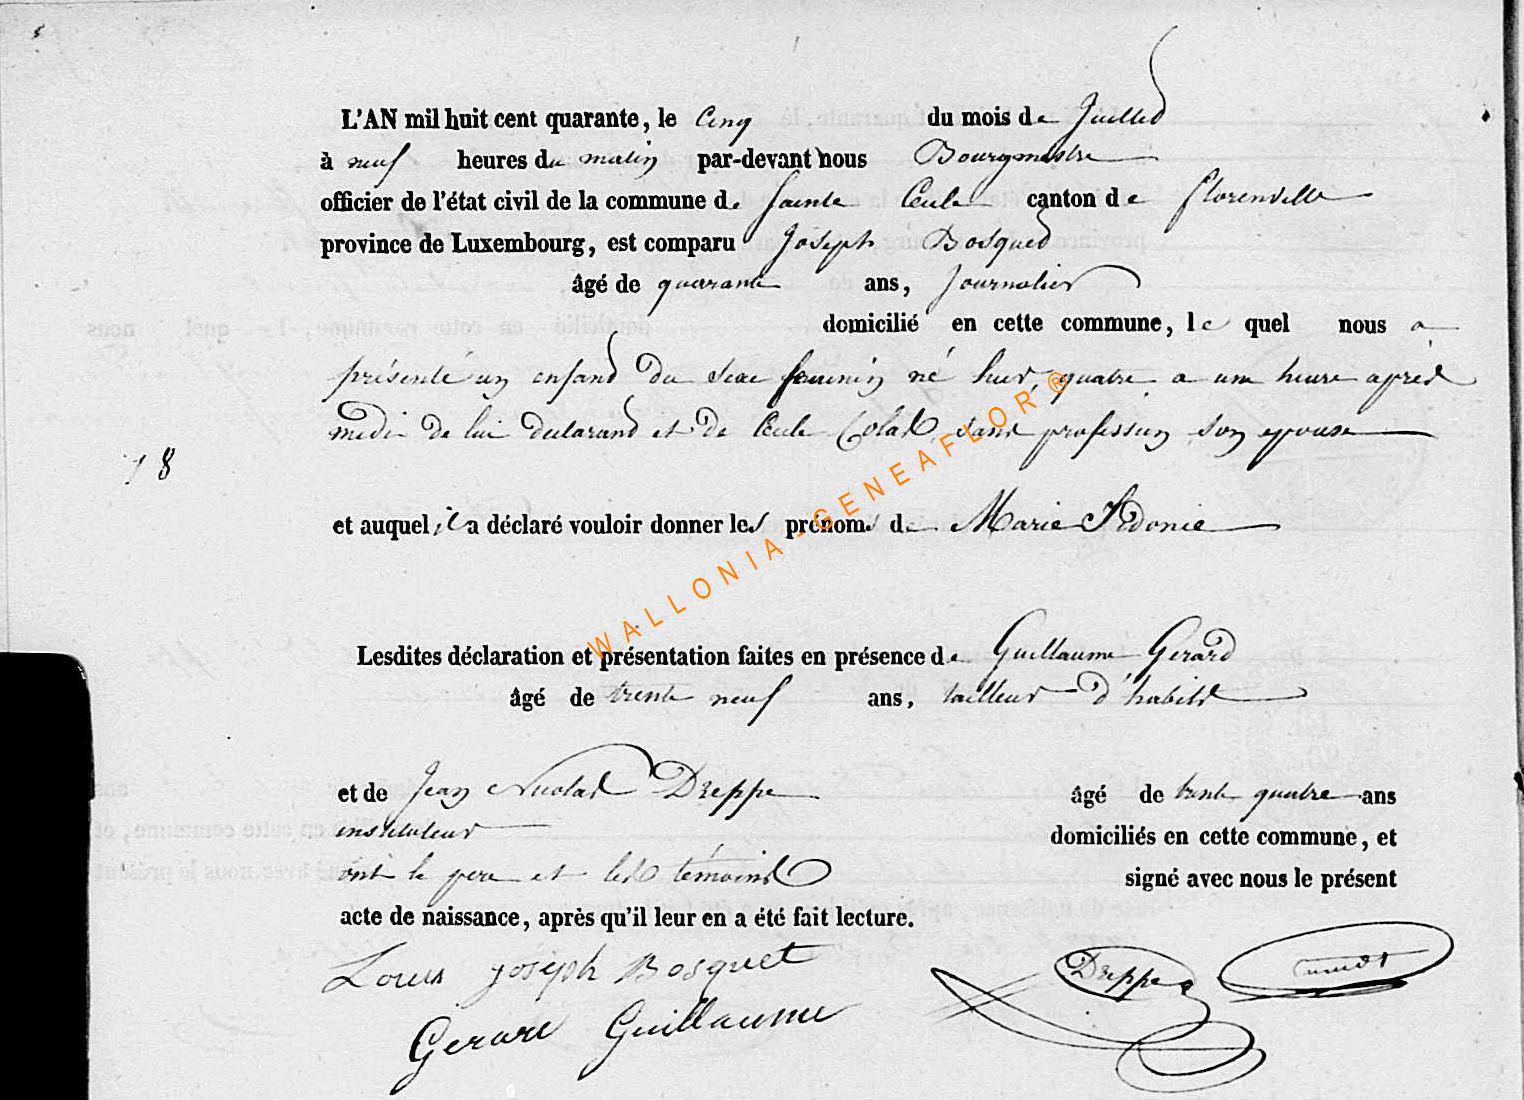 L'AN mil huit cent quarante, le Cinq du mois de Juillet
à neuf heures du matin par-devant nous Bourgmestre
officier de l'état civil de la commune de Sainte Cecile canton de florenville
province de Luxembourg, est comparu Joseph Bosquet
âgé de quarante ans, Journalier
domicilié en cette commune, le quel nous a
présenté un enfant du sexe feminin né hier, quatre a une heure après
midi de lui declarant et de Cecile Colas, sans profession son epouse
18
et auquel il a déclaré vouloir donner les prénoms de Marie Sidonie
Lesdites déclaration et présentation faites en présence de Guillaume Gerard
âgé de trente neuf ans, tailleur d'habits
et de Jean Nicolas Dreppe âgé de trente quatre ans
instituteur domiciliés en cette commune, et
ont le pere et les témoins signé avec nous le présent
acte de naissance, après qu'il leur en a été fait lecture.
Louis Joseph Bosquet Dreppe
Gerard Guillaume
WALLONIA-GENEAFLOR®